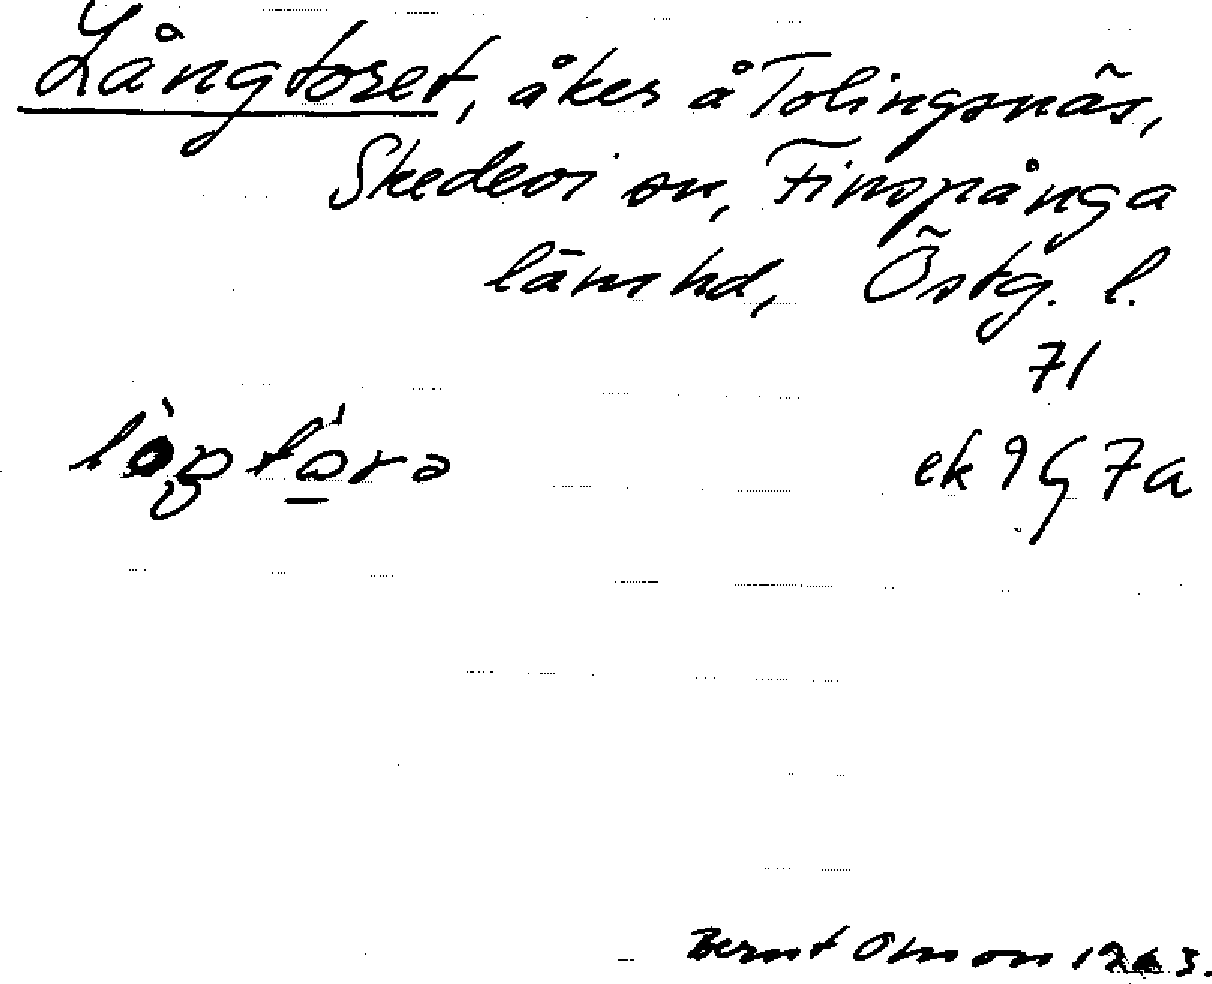 Långtoret, åker å Tolingsnäs,
Skedevi sn, Finspånga
läns hd, Östg. l.
71
ek 9 G 7a
Bernt Olsson 1963.